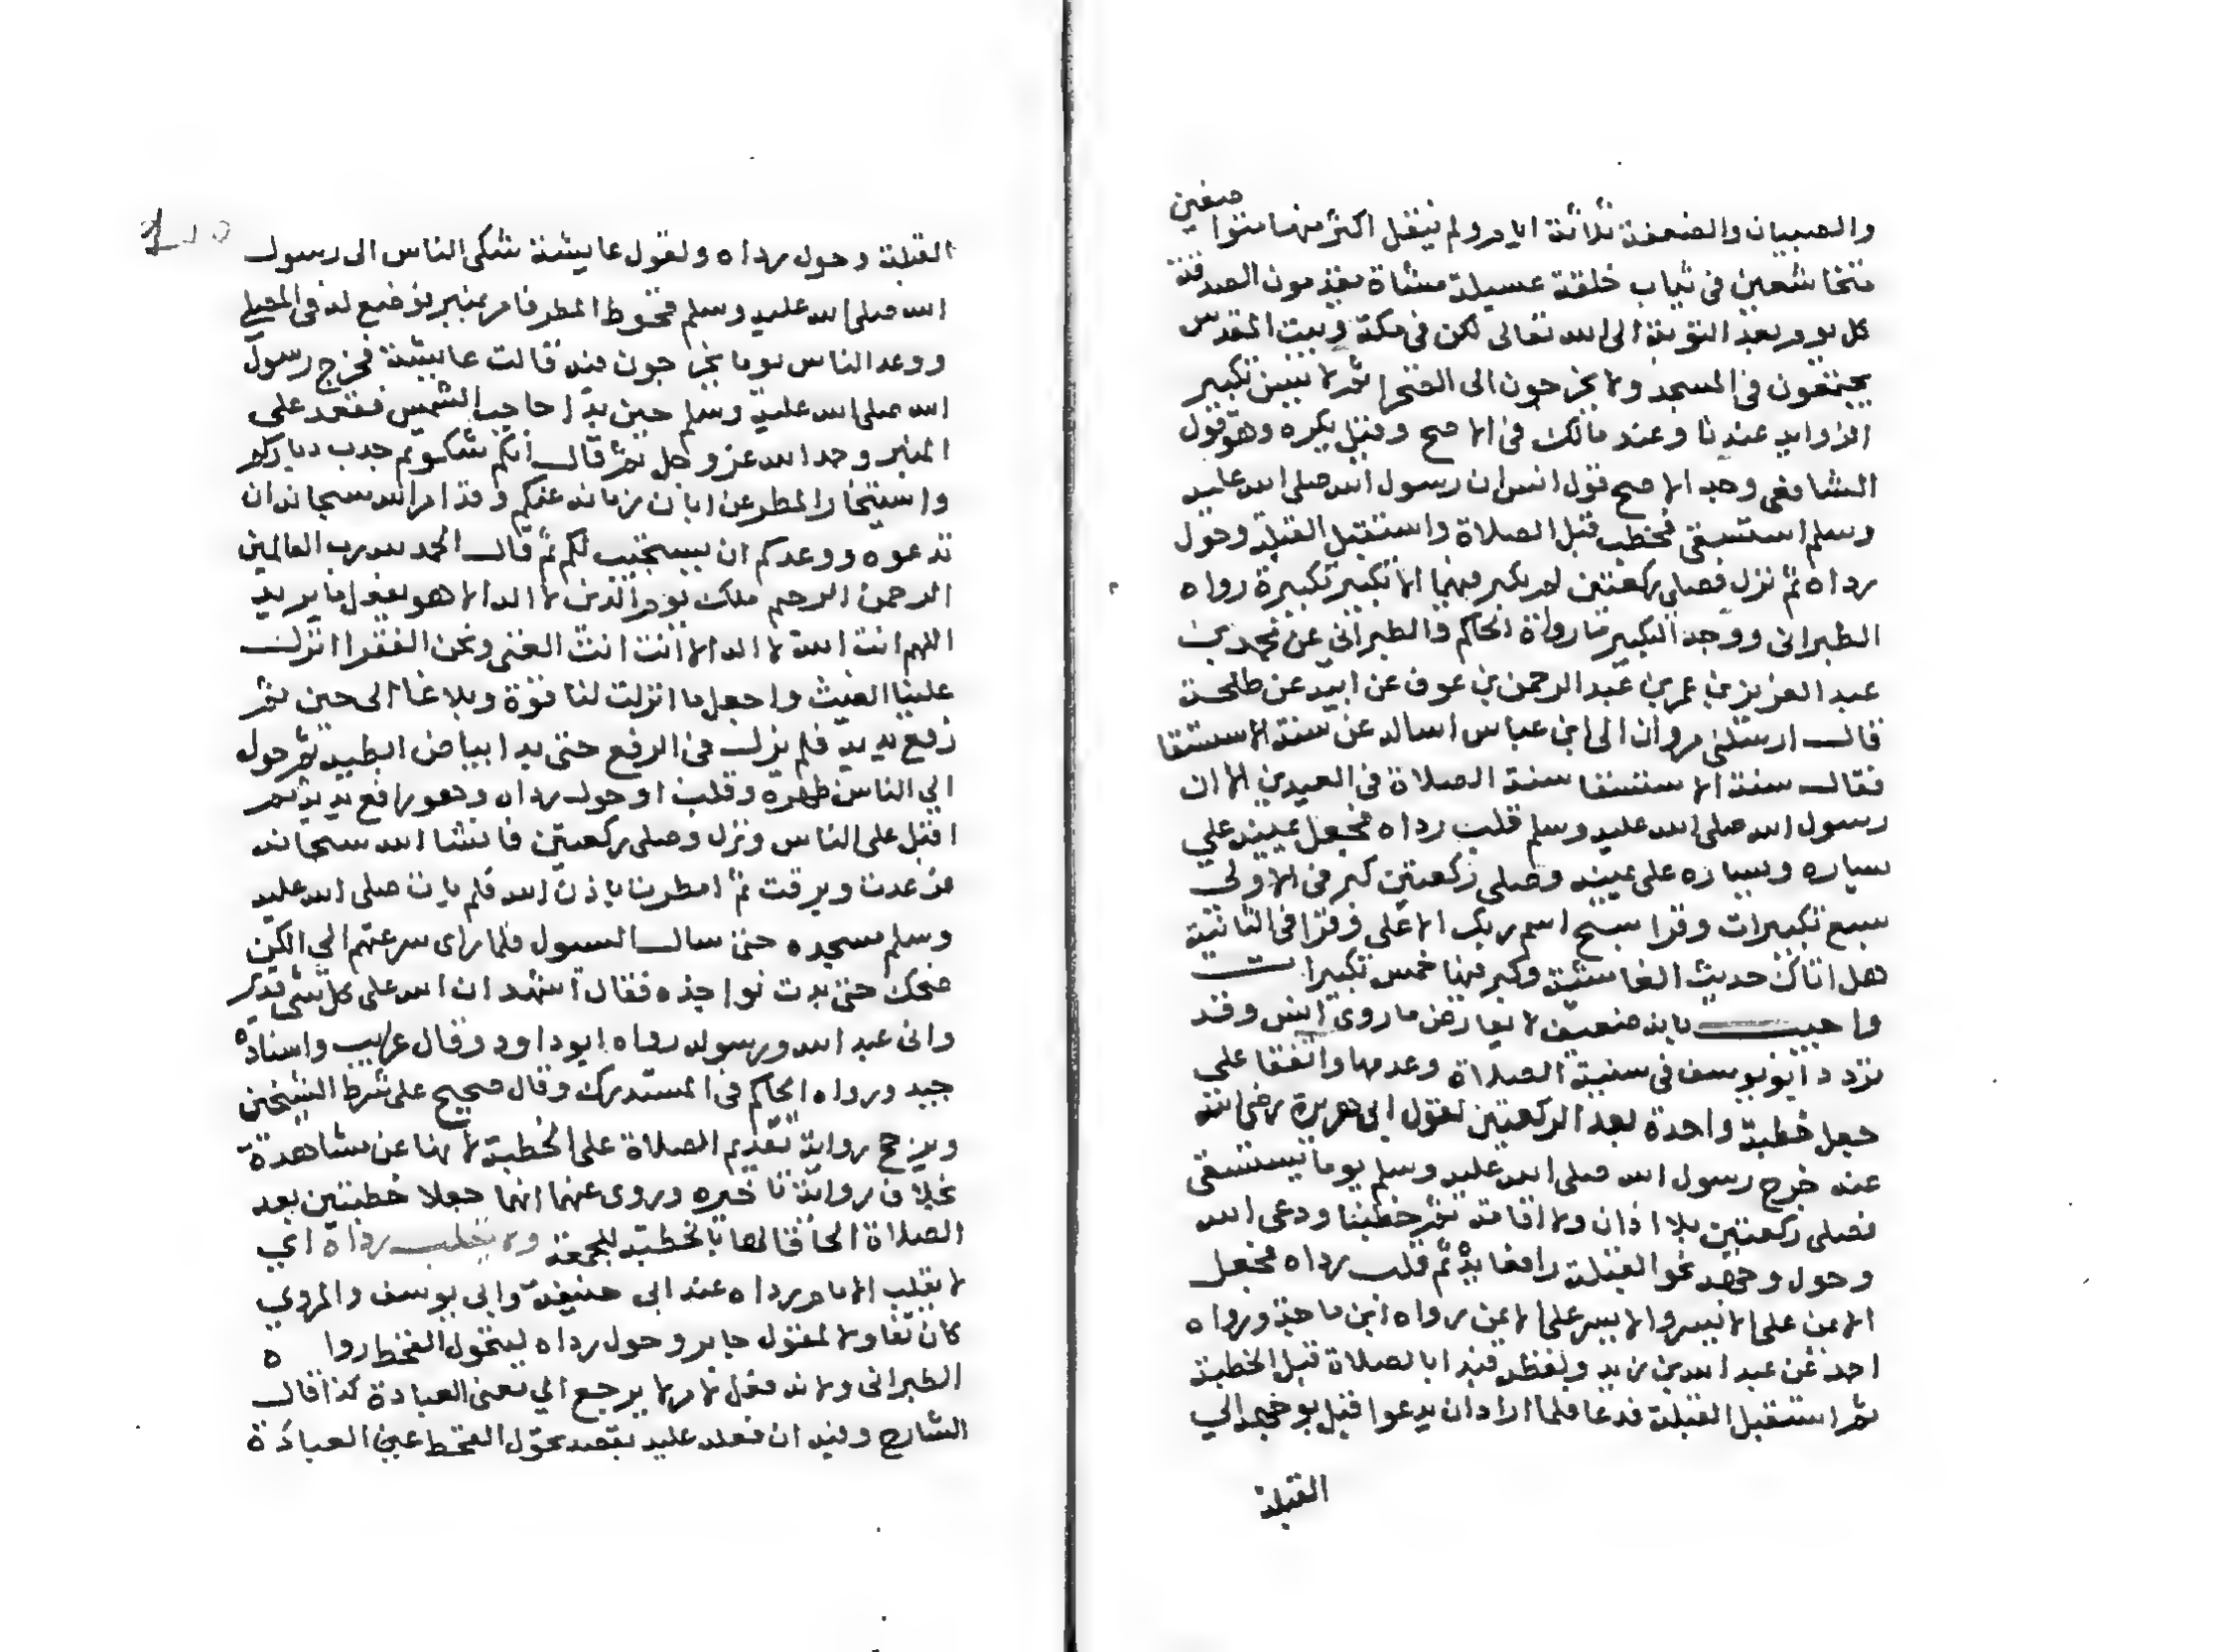 والصبيان والضعفة ثلاثة ايام ولم ينقل اكثر منها متواضعين
متخاشعين في ثياب خلقة غسيلة مشاة يقدمون الصدقة
كل يوم بعد التوبة الى الله تعالى لكن في مكة وبيت المقدس
يجتمعون في المسجد ولا يخرجون الى الصحرا ثم لا يسن تكبير
الزوايد عندنا وعند مالك في الاصح وقيل يكره وهو قول
الشافعى وجه الاصح قول انس ان رسول الله صلى الله عليه
وسلم استسقى فخطب قبل الصلاة واستقبل القبلة وحول
رداه ثم نزل فصلى ركعتين لم يكبر فيهما الا تكبيرة تكبيرة رواه
الطبرانى ووجه التكبير ما رواه الحاكم والطبراني عن محمد بن
عبد العزيز بن عمر بن عبد الرحمن بن عوف عن ابيه عن طلحة
قال ارسلنى مروان الى ابن عباس اساله عن سنة الاستسقا
فقال سنة الاستسقا سنة الصلاة في العيدين الا ان
رسول الله صلى الله عليه وسلم قلب رداه فجعل يمينه علي
يساره ويساره على يمينه وصلى ركعتين كبر فى الاولى
سبع تكبيرات وقرا سبح اسم ربك الاعلى وقرا في الثانية
هل اتاك حديث الغاشية وكبر فيها خمس تكبيرات
واجيب بانه ضعيف لا يعارض ما روى انس وقد
تردد ابو يوسف في سنية الصلاة وعدمها واتفقا على
جعل خطبة واحدة بعد الركعتين لقول ابى هريرة رضى الله
عنه خرج رسول الله صلى الله عليه وسلم يوما يستسقى
فصلى ركعتين بلا اذان ولا اقامة ثم خطبنا ودعى الله
وحول وجهه نحو القبلة رافعا يديه ثم قلب رداه فجعل
الايمن على الايسر والايسر على الايمن رواه ابن ماجة ورواه
احمد عن عبد الله بن زيد ولفظه فبدا بالصلاة قبل الخطبة
ثم استقبل القبلة فدعا فلما اراد ان يدعوا اقبل بوجهه الي
القبلة
القبلة وحول رداه ولقول عايشة شكى الناس الى رسول
الله صلى الله عليه وسلم قحوط المطر فامر بمنبر يوضع له في المصلى
ووعد الناس يوما يخرجون فيه قالت عايشة فخرج رسول
الله صلى الله عليه وسلم حين بدا حاجب الشمس فقعد على
المنبر وحمد الله عز وجل ثم قال انكم شكوتم جدب دياركم
واستيخار المطر عن ابان زمانه عنكم وقد امر الله سبحانه ان
تدعوه ووعدكم ان يستجيب لكم ثم قال الحمد لله رب العالمين
الرحمن الرحيم ملك يوم الدين لا اله الا هو يفعل ما يريد
اللهم انت الله لا اله الا انت انت الغنى ونحن الفقرا انزل
علينا الغيث واجعل ما انزلت لنا قوة وبلاغا الى حين ثم
رفع يديه فلم يزل في الرفع حتى بدا بياض ابطيه ثم حول
الي الناس ظهره وقلب او حول رداه وهو رافع يديه ثم
اقبل على الناس ونزل وصلى ركعتين فانشا الله سحابة
فرعدت وبرقت ثم امطرت باذن الله فلم يات صلى الله عليه
وسلم مسجده حتى سال السيول فلما راى سرعتهم الي الكن
ضحك حتى بدت نواجذه فقال اشهد ان الله على كل شى قدير
وانى عبد الله ورسوله رواه ابو داود وقال غريب واسناده
جيد ورواه الحاكم في المستدرك وقال صحيح على شرط الشيخين
ويرجح رواية تقديم الصلاة على الخطبة لانها عن مشاهدة
بخلاف رواية تاخيره وروى عنهما انهما جعلا خطبتين بعد
الصلاة الحاقا لها بالخطبة للجمعة ولا يقلب رداه اي
لا يقلب الامام رداه عند ابى حنيفة وابي يوسف والمروي
كان تفاولا لقول جابر وحول رداه ليتحول القحط رواه
الطبرانى ولانه فعل لامر لا يرجع الي معنى العبادة كذا قال
الشارح وفيه ان فعله عليه بقصد تحول القحط عين العبادة